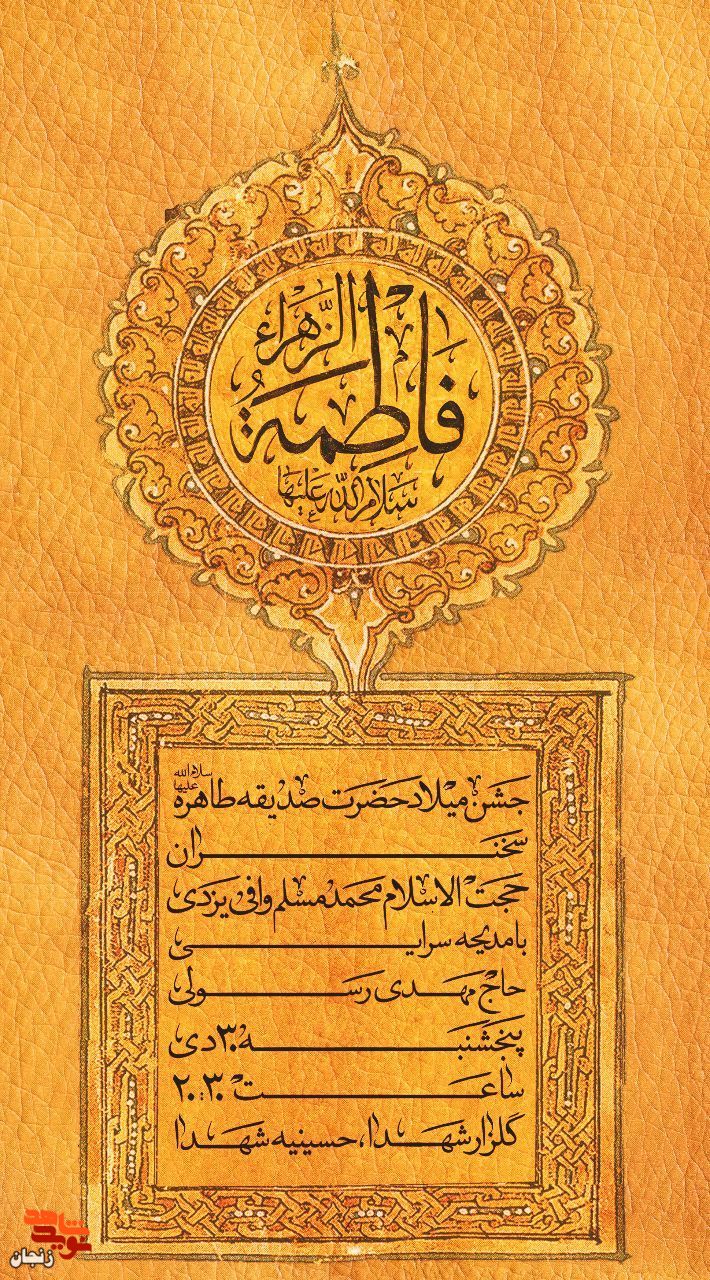 فَاطِمَةُ الزَّهْرَاء
سَلَامُ اللّٰهِ عَلَيْهَا
جشن میلاد حضرت صدیقه طاهره سلام الله علیها
سخنران
حجت الاسلام محمد مسلم وافی یزدی
با مدیحه سرایی
حاج مهدی رسولی
پنجشنبه ۳۰ دی
ساعت ۲۰:۳۰
گلزار شهدا، حسینیه شهدا
نوید شاهد
زنجان